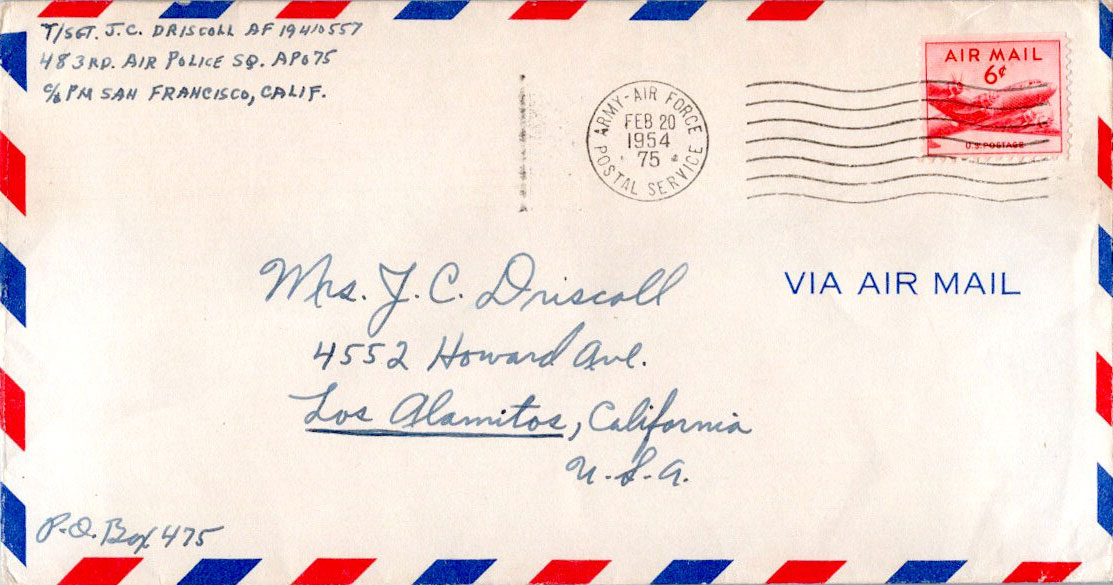 T/SGT. J.C. DRISCOLL AF 19410557
483RD. AIR POLICE SQ. APO 75
c/o PM SAN FRANCISCO, CALIF.
ARMY-AIR FORCE
FEB 20
1954
75
POSTAL SERVICE
AIR MAIL
6¢
U.S. POSTAGE
VIA AIR MAIL
Mrs. J. C. Driscoll
4552 Howard Ave.
Los Alamitos, California
U.S.A.
P.O. Box 475